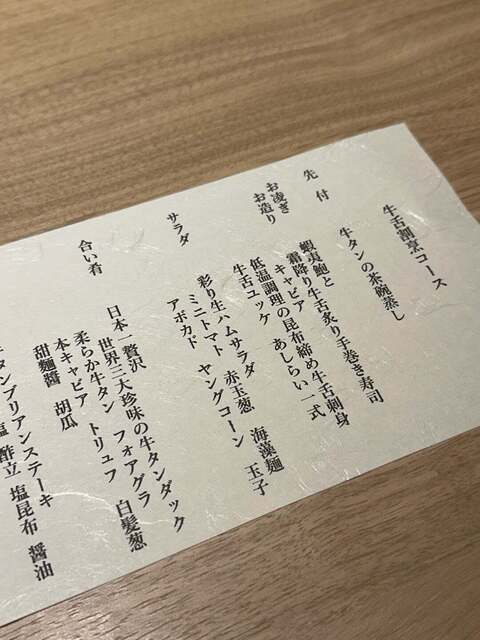 牛舌割烹コース
先付
牛タンの茶碗蒸し
お凌ぎ
お造り
蝦夷鮑と
霜降り牛舌炙り手巻き寿司
キャビア
低温調理の昆布締め牛舌刺身
牛舌ユッケ あしらい一式
サラダ
彩り生ハムサラダ 赤玉葱 海藻麺
ミニトマト ヤングコーン 玉子
アボカド
合い肴
日本一贅沢
世界三大珍味の牛タンダック
柔らか牛タン トリュフ フォアグラ 白髪葱
本キャビア
甜麺醬 胡瓜
タンブリアンステーキ
塩 酢立 塩昆布 醤油